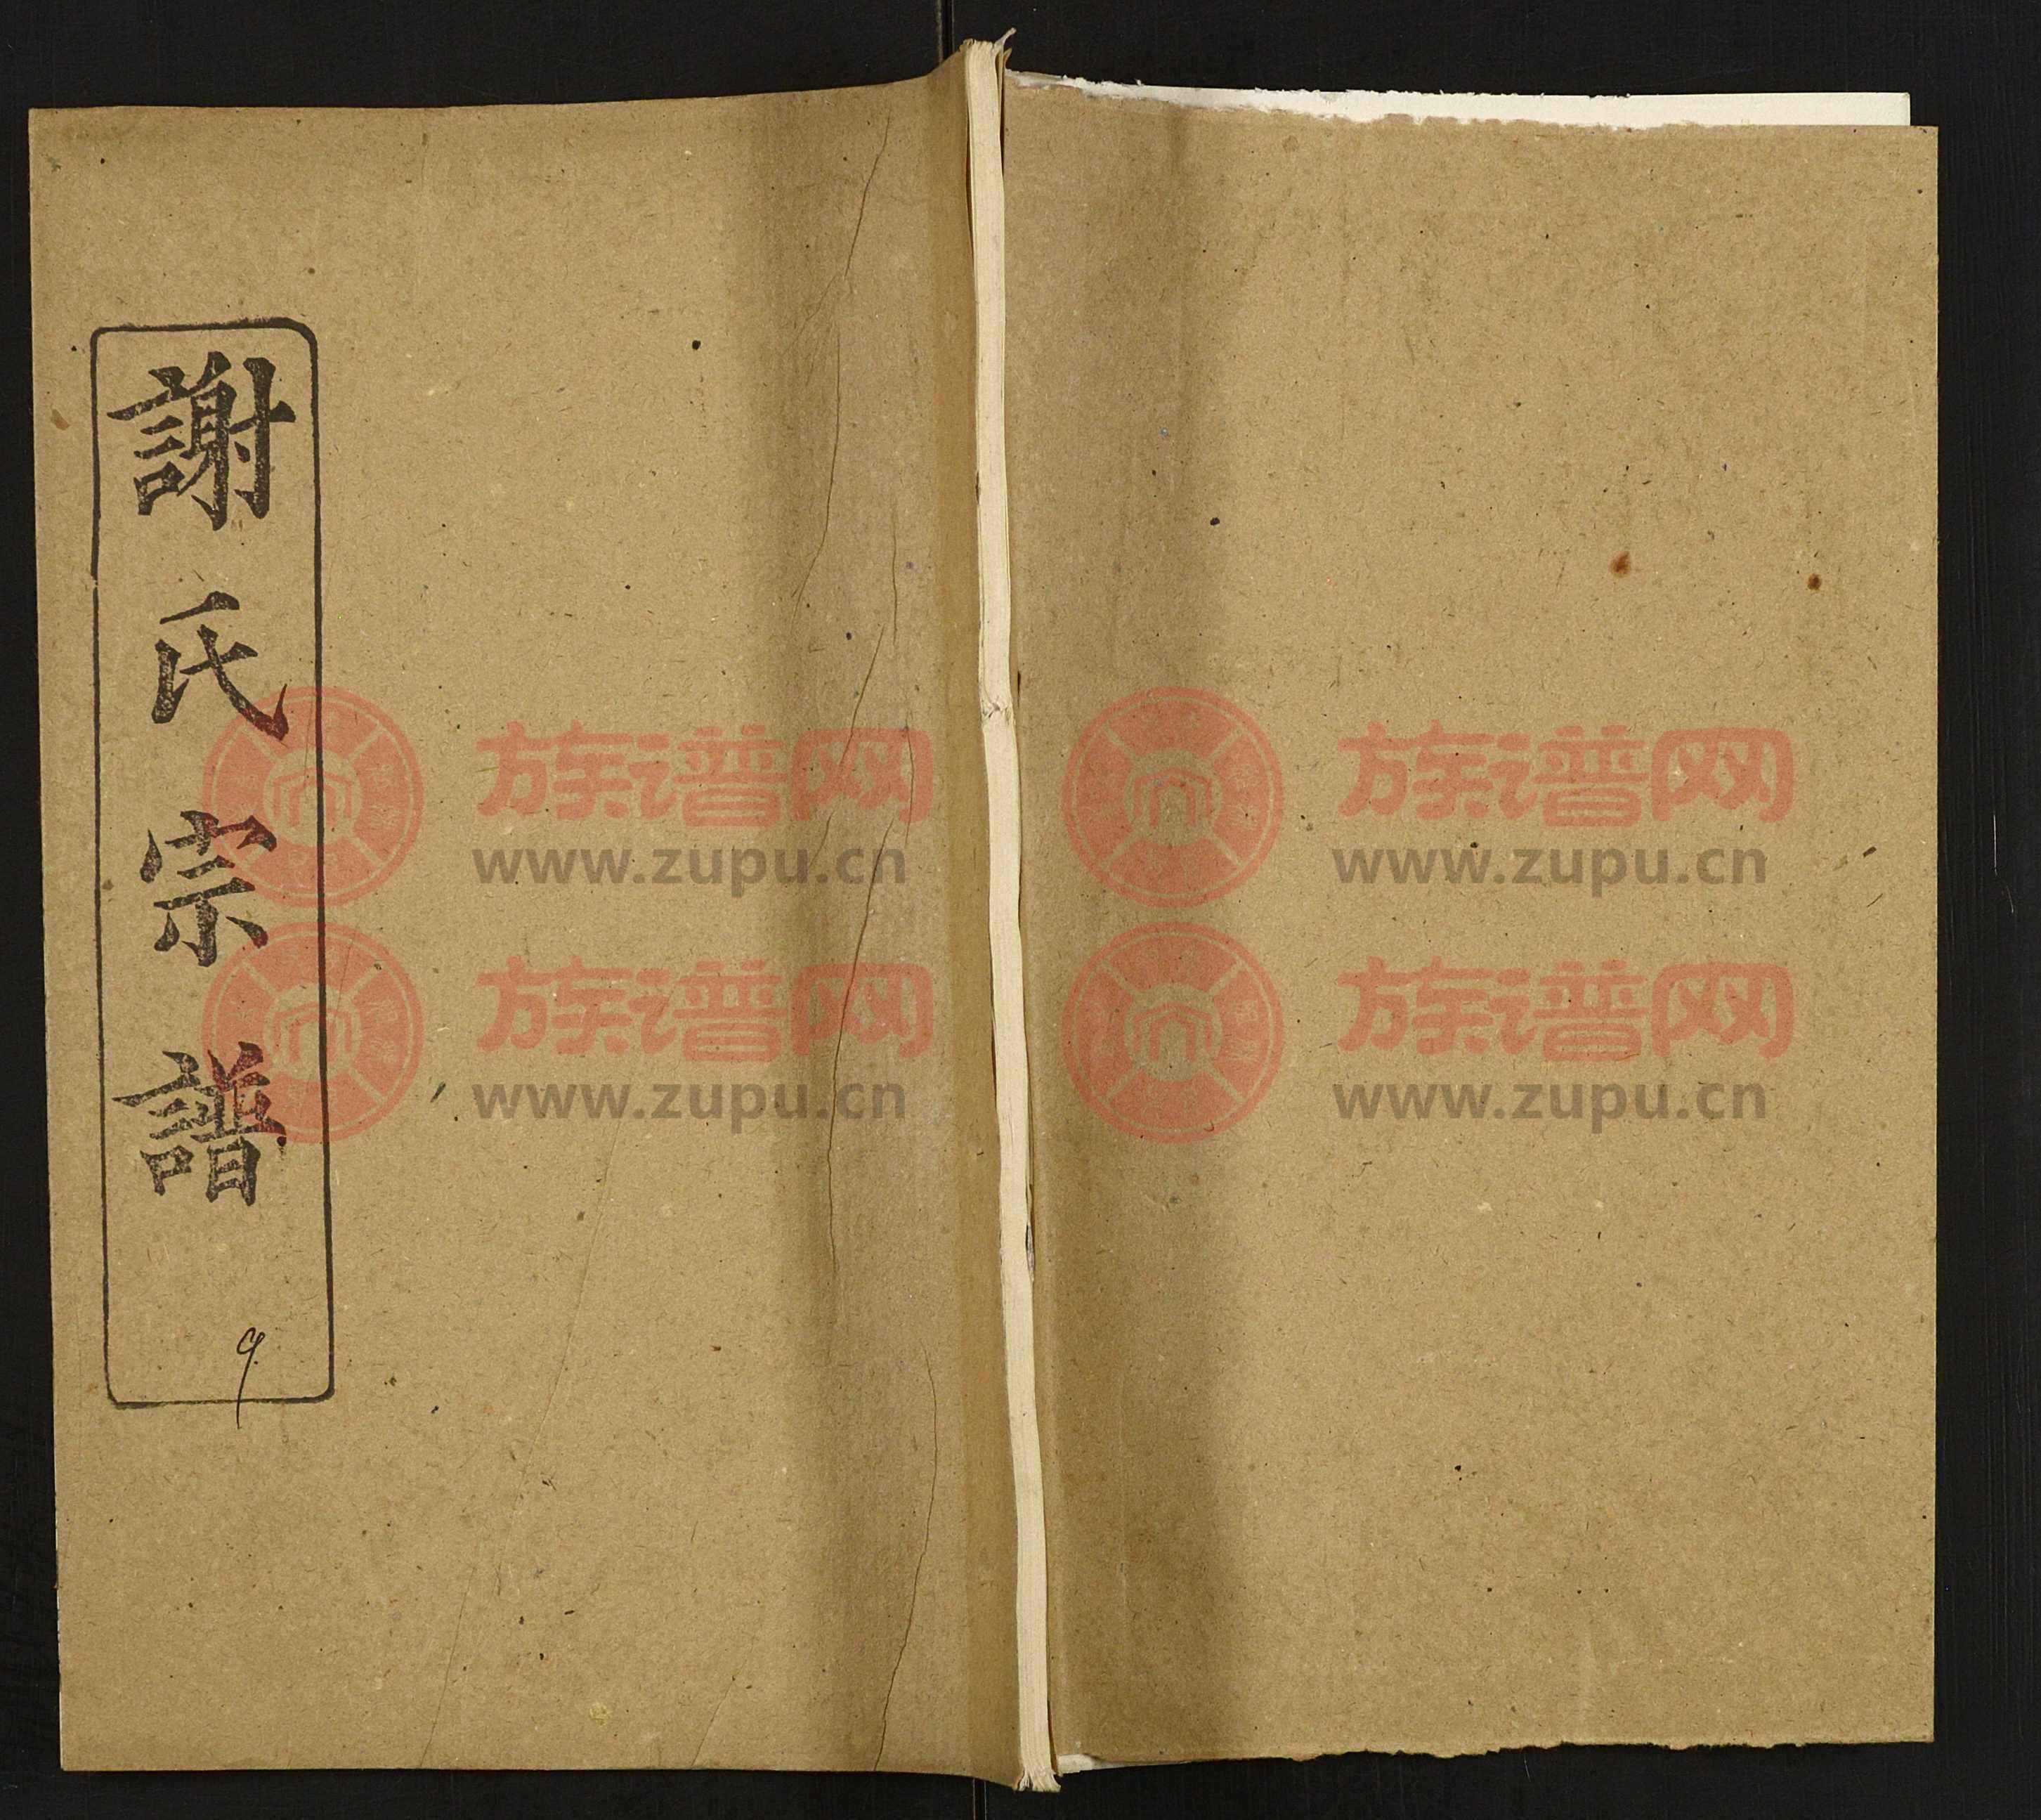 謝氏宗譜
9
族谱网
www.zupu.cn
族谱网
www.zupu.cn
族谱网
www.zupu.cn
族谱网
www.zupu.cn